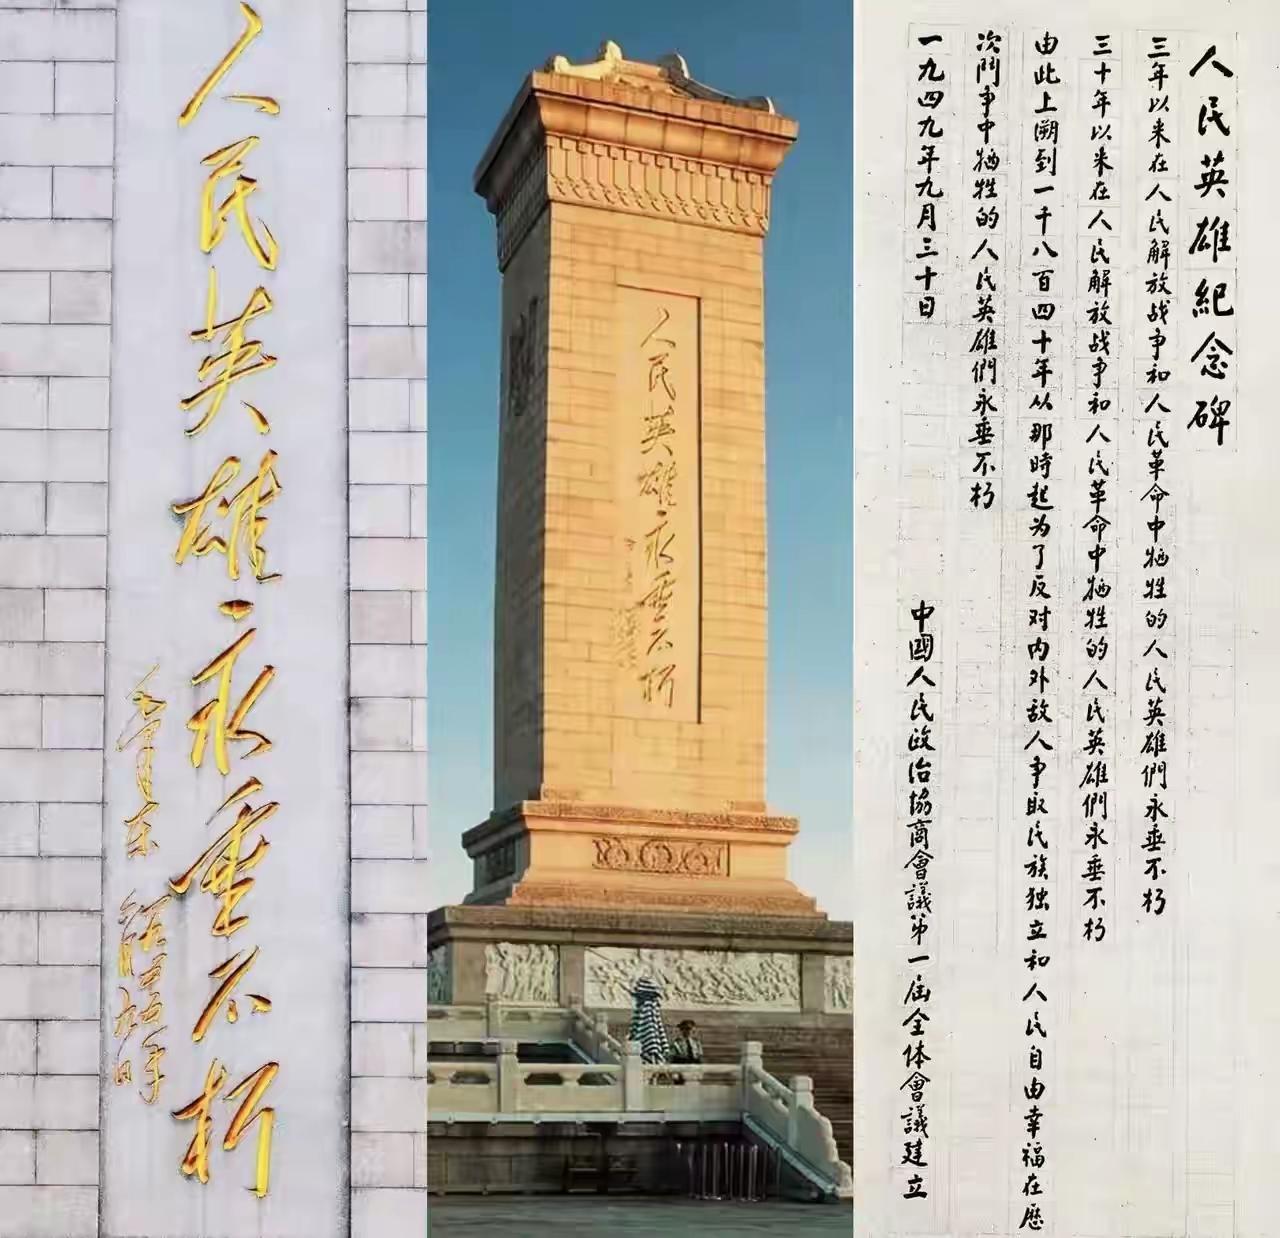 人民英雄永垂不朽
毛泽东
人民英雄永垂不朽
人民英雄紀念碑
三年以来在人民解放战争和人民革命中牺牲的人民英雄們永垂不朽
三十年以来在人民解放战争和人民革命中牺牲的人民英雄們永垂不朽
由此上溯到一千八百四十年从那時起为了反对内外敌人争取民族独立和人民自由幸福在歷
次鬥争中牺牲的人民英雄們永垂不朽
一九四九年九月三十日 中國人民政治協商會議第一届全体會議建立